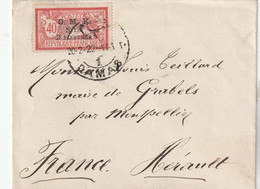 O. M. F.
40
REPUBLIQUE FRANÇAISE
1
DAMAS
Monsieur Louis Teillard
maire de Grabels
par Montpellier
France Hérault